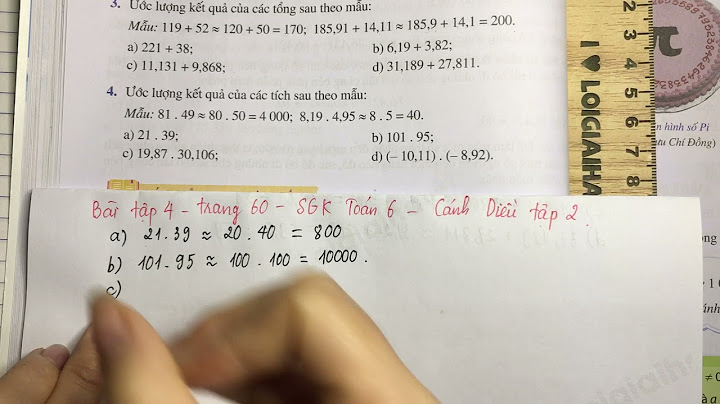 3. Ước lượng kết quả của các tổng sau theo mẫu:
Mẫu: 119 + 52 ≈ 120 + 50 = 170; 185,91 + 14,11 ≈ 185,9 + 14,1 = 200.
a) 221 + 38; b) 6,19 + 3,82;
c) 11,131 + 9,868; d) 31,189 + 27,811.
4. Ước lượng kết quả của các tích sau theo mẫu:
Mẫu: 81 . 49 ≈ 80 . 50 = 4 000; 8,19 . 4,95 ≈ 8 . 5 = 40.
a) 21 . 39; b) 101 . 95;
c) 19,87 . 30,106; d) (– 10,11) . (– 8,92).
Bài tập 4 - trang 60 - SGK Toán 6 - Cánh Diều tập 2.
a) 21.39 ≈ 20.40 = 800
b) 101.95 ≈ 100.100 = 10000.
c)
2 3 4 5 6 7 8
I ♥ LOIGIAIHA
n hình số Pi
ưu Chí Đồng)
ong
≠ 0